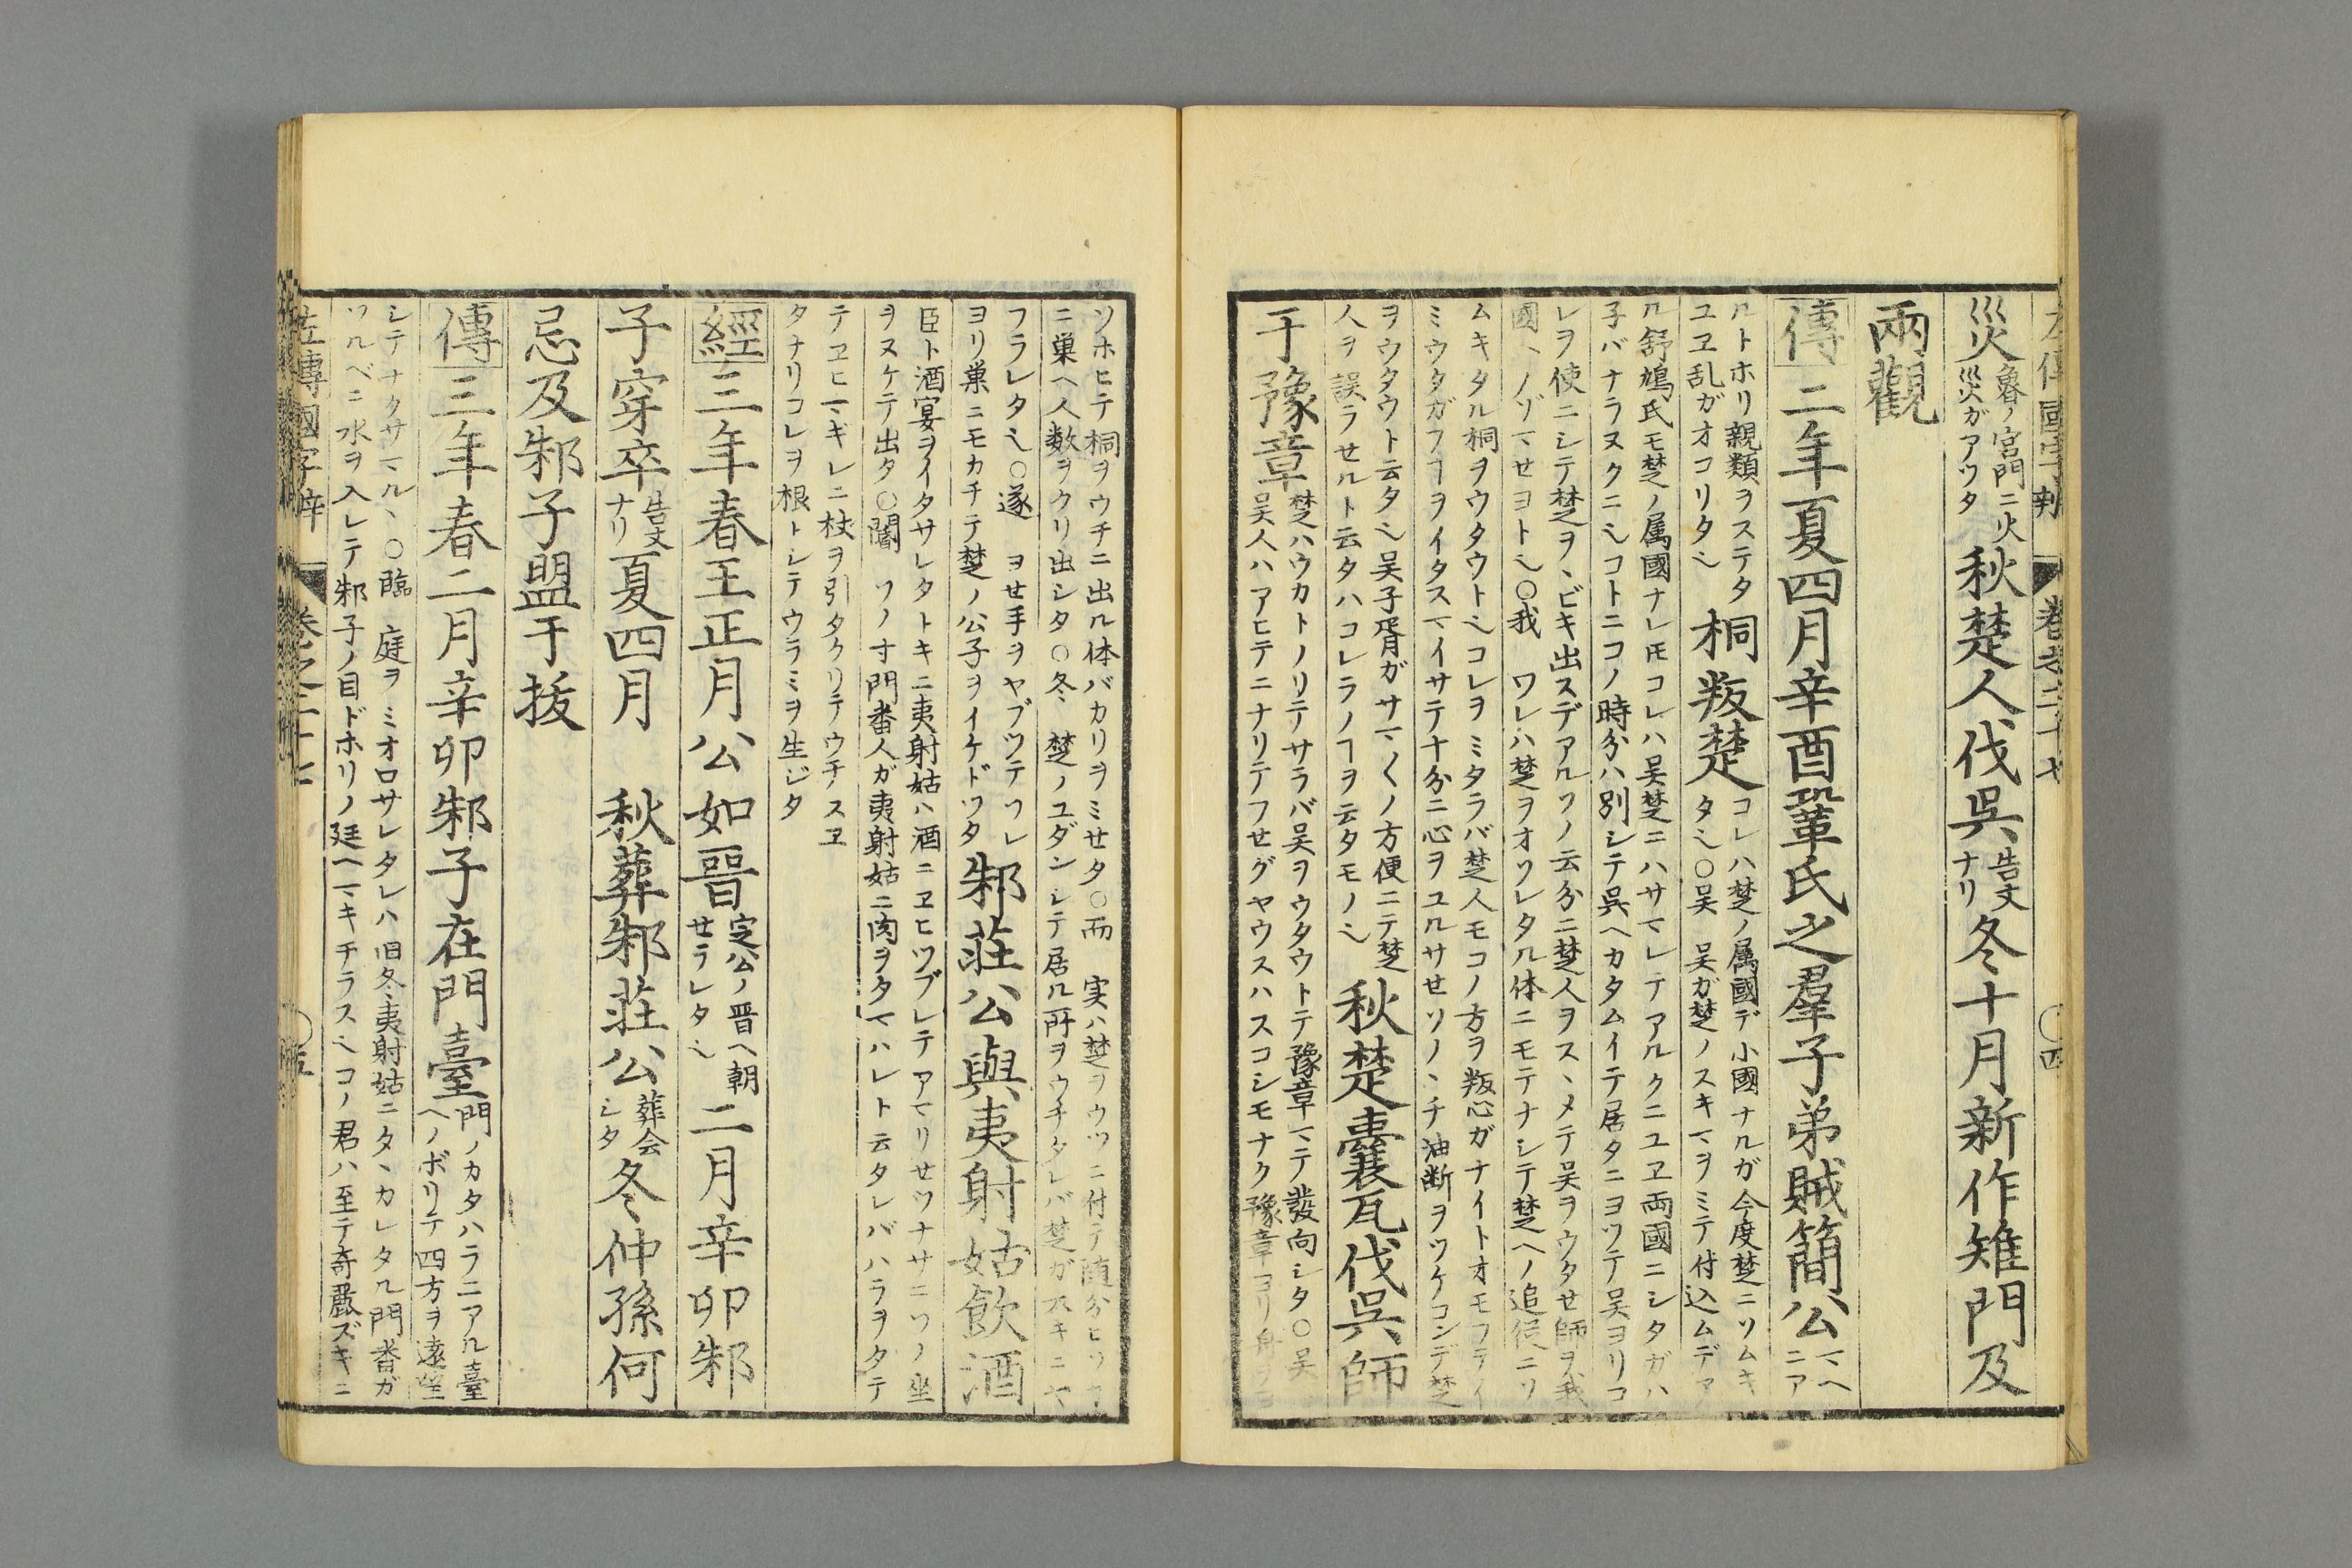 災
魯ノ宮門ニ火
災ガアツタ
秋楚人伐呉
告文
ナリ
冬十月新作雉門及
兩觀
傳二年夏四月辛酉鞏氏之羣子弟賊簡公
マヘ
ニア
ルトホリ親類ヲステタ
ユヱ乱ガオコリタ也
桐叛楚
コレハ楚ノ属國デ小國ナルガ今度楚ニソムキ
タ也○呉 呉ガ楚ノスキマヲミテ付込ムデア
ル舒鳩氏モ楚ノ属國ナレ𪜈コレハ呉楚ニハサマレテアルクニユヱ両國ニシタガハ
子バナラヌクニ也コトニコノ時分ハ別シテ呉ヘカタムイテ居タニヨツテ呉ヨリコ
レヲ使ニシテ楚ヲヽビキ出スデアルソノ云分ニ楚人ヲスヽメテ呉ヲウタセ師ヲ我
國ヽノゾマセヨト也○我 ワレハ楚ヲオソレタル体ニモテナシテ楚ヘノ追従ニソ
ムキタル桐ヲウタウト也コレヲミタラバ楚人モコノ方ヲ叛心ガナイトオモフテイ
ミウタガフヿヲイタスマイサテ十分ニ心ヲユルサセソノヽチ油断ヲツケコンデ楚
ヲウタウト云タ也呉子胥ガサマ〱ノ方便ニテ楚
人ヲ誤ラセルト云タハコレラノヿヲ云タモノ也
秋楚囊瓦伐呉師
于豫章
楚ハウカトノリテサラバ呉ヲウタウトテ豫章マテ發向シタ○呉
呉人ハアヒテニナリテフセグヤウスハスコシモナク豫章ヨリ舟
ソホヒテ桐ヲウチニ出ル体バカリヲミセタ○而 実ハ楚ヲウツニ付テ随分ヒソカ
ニ巣ヘ人数ヲクリ出シタ○冬 楚ノユダンシテ居ル所ヲウチタレバ楚ガスキニヤ
フラレタ也○遂 ヨセ手ヲヤブツテソレ
ヨリ巣ニモカチテ楚ノ公子ヲイケドツタ
邾莊公與夷射姑飲酒
臣ト酒宴ヲイタサレタトキニ夷射姑ハ酒ニヱヒツブレテアマリセツナサニソノ坐
ヲヌケテ出タ○閽 ソノ寸門番人ガ夷射姑ニ肉ヲタマハレト云タレバハラヲタテ
テヱヒマギレニ杖ヲ引タクリテウチスヱ
タナリコレヲ根トシテウラミヲ生ジタ
經三年春王正月公如晉
定公ノ晋ヘ朝
セラレタ也
二月辛卯邾
子穿卒
告文
ナリ
夏四月 秋葬邾莊公
葬会
シタ
冬仲孫何
忌及邾子盟于拔
傳三年春二月辛卯邾子在門臺
門ノカタハラニアル臺
ヘノボリテ四方ヲ遠望
シテナクサマル、○臨 庭ヲミオロサレタレハ旧冬夷射姑ニタヽカレタル門番ガ
ツルベニ水ヲ入レテ邾子ノ目ドホリノ廷ヘマキチラス也コノ君ハ至テ奇麗ズキニ
左傳國字辨 卷之二十七 五